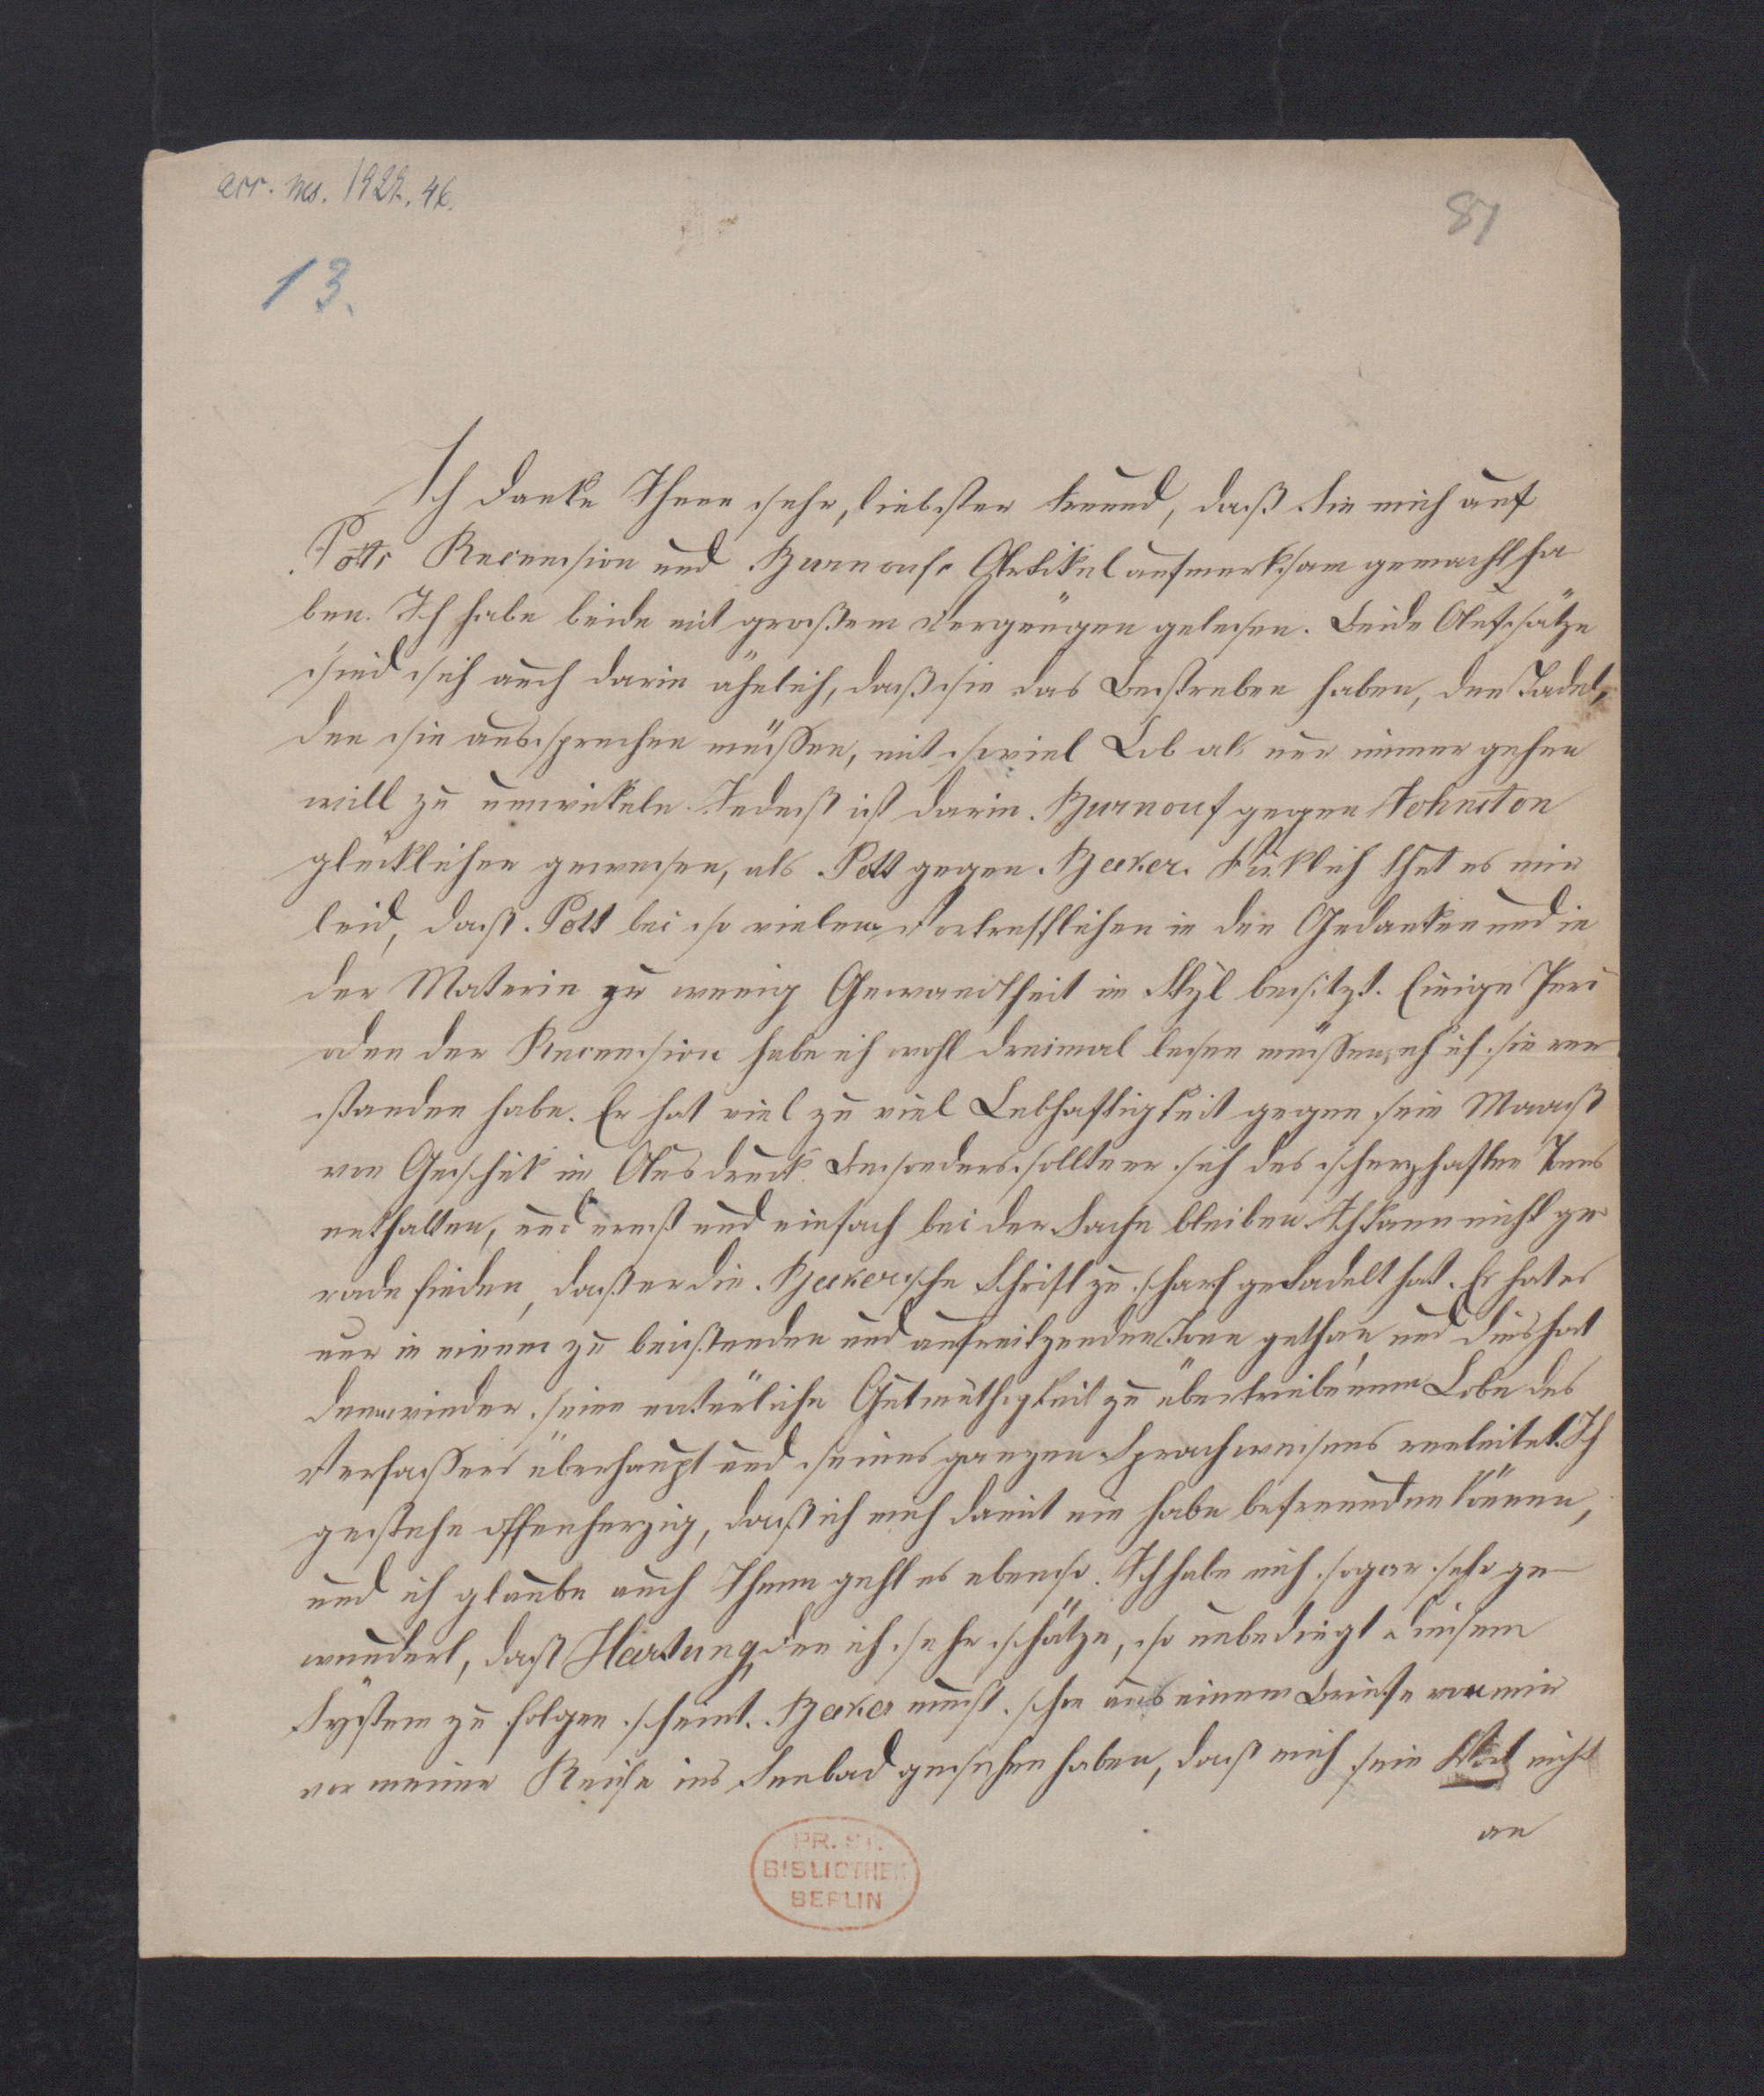 acc. ms. 1922. 46.
81
13.
Ich danke Ihnen sehr, liebster Freund, daß Sie mich auf
Potts Recension und Burnoufs Artikel aufmerksam gemacht ha
ben. Ich habe beide mit großem Vergnügen gelesen. Beide Aufsätze
sind sich auch darin ähnlich, daß sie das Bestreben haben, den Tadel,
den sie aussprechen müssen, mit soviel Lob als nur immer gehen
will zu umwickeln. Indeß ist darin Burnouf gegen Johnston
glücklicher gewesen, als Pott gegen Becker. Wirklich thut es mir
leid, daß Pott bei so vielem Vortrefflichen in den Gedanken und in
der Materie zu wenig Gewandtheit im Styl besitzt. Einige Peri
oden der Recension habe ich wohl dreimal lesen müssen, eh ich sie ver
standen habe. Er hat viel zu viel Lebhaftigkeit gegen sein Maaß
von Geschick im Ausdruck. Besonders sollte er sich des scherzhaften Tons
enthalten, und ernst und einfach bei der Sache bleiben. Ich kann nicht ge
rade finden, daß er die Beckersche Schrift zu scharf getadelt hat. Er hat es
nur in einem zu beißenden und aufreitzenden Tone gethan und dies hat
dann wieder seine natürliche Gutmüthigkeit zu übertriebenem Lobe des
Verfassers überhaupt und seines ganzen Sprachwesens verleitet. Ich
gestehe offenherzig, daß ich mich damit nie habe befreunden können,
und ich glaube auch Ihnen geht es ebenso. Ich habe mich sogar sehr ge
wundert, daß Hartung, den ich sehr schätze, so unbedingt diesem
System zu folgen scheint. Becker muß schon aus einem Briefe von mir
vor meiner Reise ins Seebad gesehen haben, daß mich sein Wort nicht
an
PR. ST.
BIBLIOTHEK
BERLIN